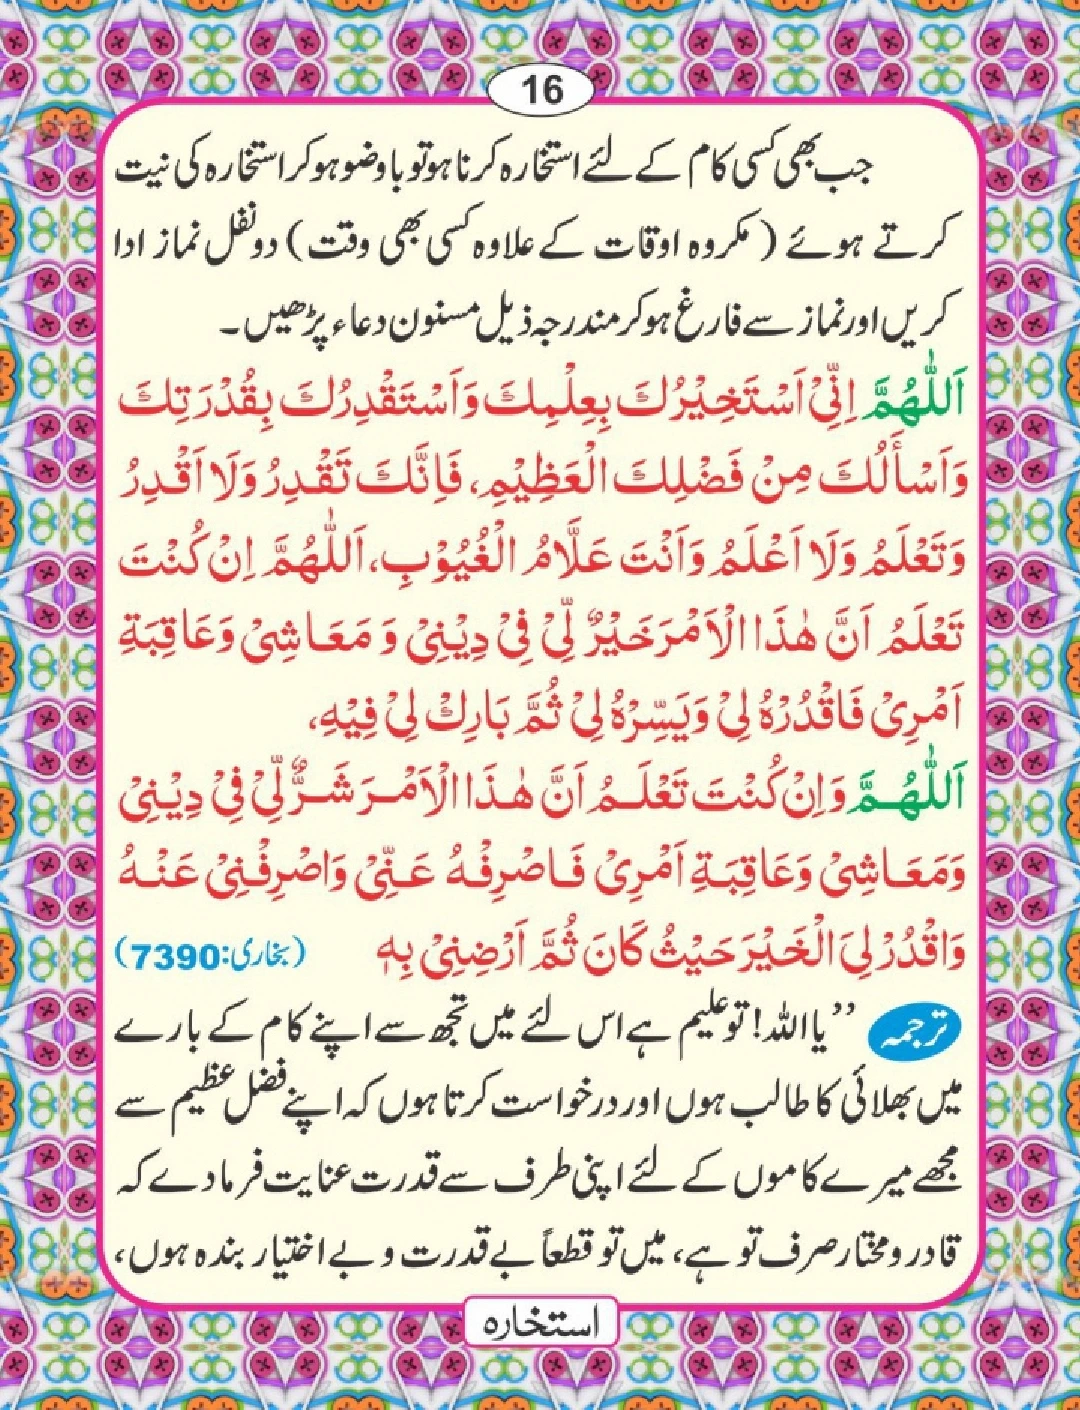 16
جب بھی کسی کام کے لئے استخارہ کرنا ہو تو باوضو ہوکر استخارہ کی نیت
کرتے ہوئے (مکروہ اوقات کے علاوہ کسی بھی وقت) دو نفل نماز ادا
کریں اور نماز سے فارغ ہوکر مندرجہ ذیل مسنون دعاء پڑھیں۔
اَللّٰهُمَّ اِنِّیْ اَسْتَخِیْرُكَ بِعِلْمِكَ وَاَسْتَقْدِرُكَ بِقُدْرَتِكَ
وَاَسْأَلُكَ مِنْ فَضْلِكَ الْعَظِیْمِ، فَاِنَّكَ تَقْدِرُ وَلَا اَقْدِرُ
وَتَعْلَمُ وَلَا اَعْلَمُ وَاَنْتَ عَلَّامُ الْغُیُوْبِ، اَللّٰهُمَّ اِنْ كُنْتَ
تَعْلَمُ اَنَّ هٰذَا الْاَمْرَ خَیْرٌ لِّیْ فِیْ دِیْنِیْ وَ مَعَاشِیْ وَعَاقِبَةِ
اَمْرِیْ فَاقْدُرْهُ لِیْ وَیَسِّرْهُ لِیْ ثُمَّ بَارِكْ لِیْ فِیْهِ،
اَللّٰهُمَّ وَاِنْ كُنْتَ تَعْلَمُ اَنَّ هٰذَا الْاَمْرَ شَرٌّ لِّیْ فِیْ دِیْنِیْ
وَمَعَاشِیْ وَعَاقِبَةِ اَمْرِیْ فَاصْرِفْهُ عَنِّیْ وَاصْرِفْنِیْ عَنْهُ
وَاقْدُرْ لِیَ الْخَیْرَ حَیْثُ كَانَ ثُمَّ اَرْضِنِیْ بِهٖ (بخاری: 7390)
ترجمہ ”یا اللہ! تو علیم ہے اس لئے میں تجھ سے اپنے کام کے بارے
میں بھلائی کا طالب ہوں اور درخواست کرتا ہوں کہ اپنے فضل عظیم سے
مجھے میرے کاموں کے لئے اپنی طرف سے قدرت عنایت فرما دے کہ
قادر و مختار صرف تو ہے، میں تو قطعاً بے قدرت و بے اختیار بندہ ہوں،
استخارہ